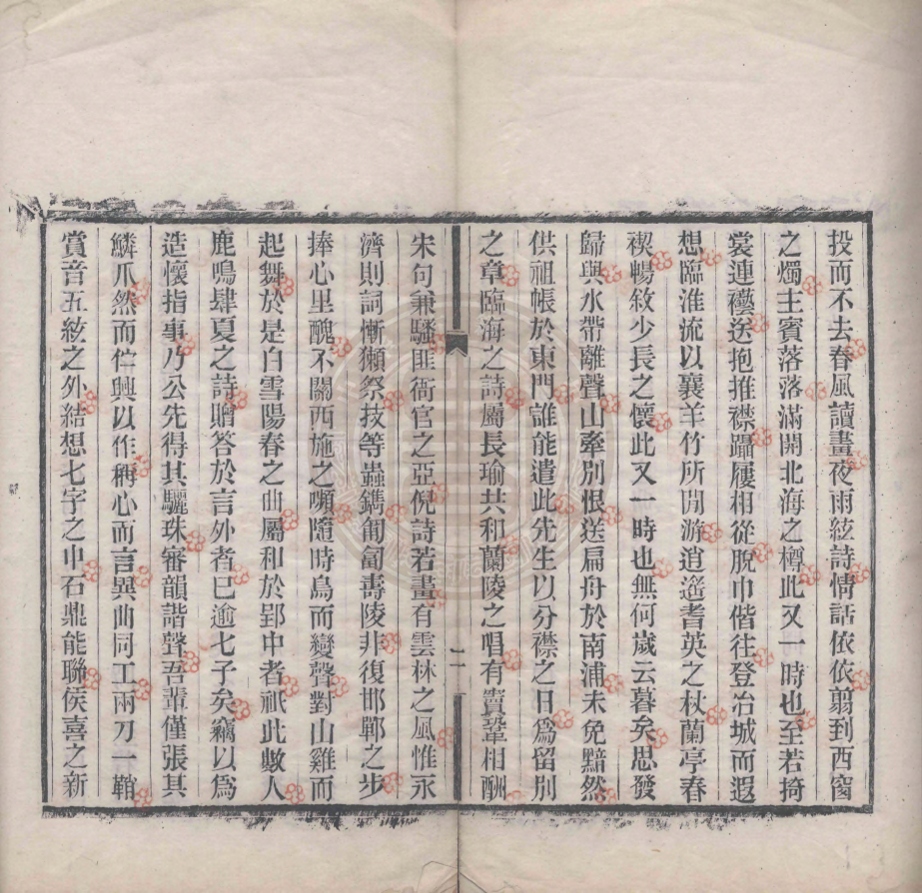 投而不去春風讀畫夜雨絃詩情話依依翦到西窗
之燭主賓落落滿開北海之樽此又一時也至若掎
裳連襼送抱推襟躡屨相從脫巾偕往登冶城而遐
想臨淮流以襄羊竹所閒游逍遙耆英之杖蘭亭春
禊暢敘少長之懷此又一時也無何歲云暮矣思發
歸與水帶離聲山牽別恨送扁舟於南浦未免黯然
供祖帳於東門誰能遣此先生以分襟之日爲留別
之章臨海之詩屬長瑜共和蘭陵之唱有賣鞏相酬
宋句兼騷匪衙官之亞倪詩若畫有雲林之風惟永
濟則詞慚獺祭技等蟲鐫匍匐壽陵非復邯鄲之步
捧心里醜不關西施之嚬隨時鳥而變聲對山雞而
起舞於是白雪陽春之曲屬和於郢中者祇此數人
鹿鳴肆夏之詩贈答於言外者已逾七子矣竊以爲
造懷指事乃公先得其驪珠審韻諧聲吾輩僅張其
鱗爪然而伫興以作稱心而言異曲同工兩刀一鞘
賞音五絃之外結想七字之中石鼎能聯侯喜之新
二